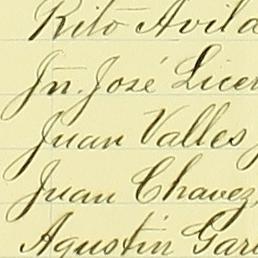 Rito Avila
Jn. José Licer
Juan Valles
Juan Chavez,
Agustín Gar